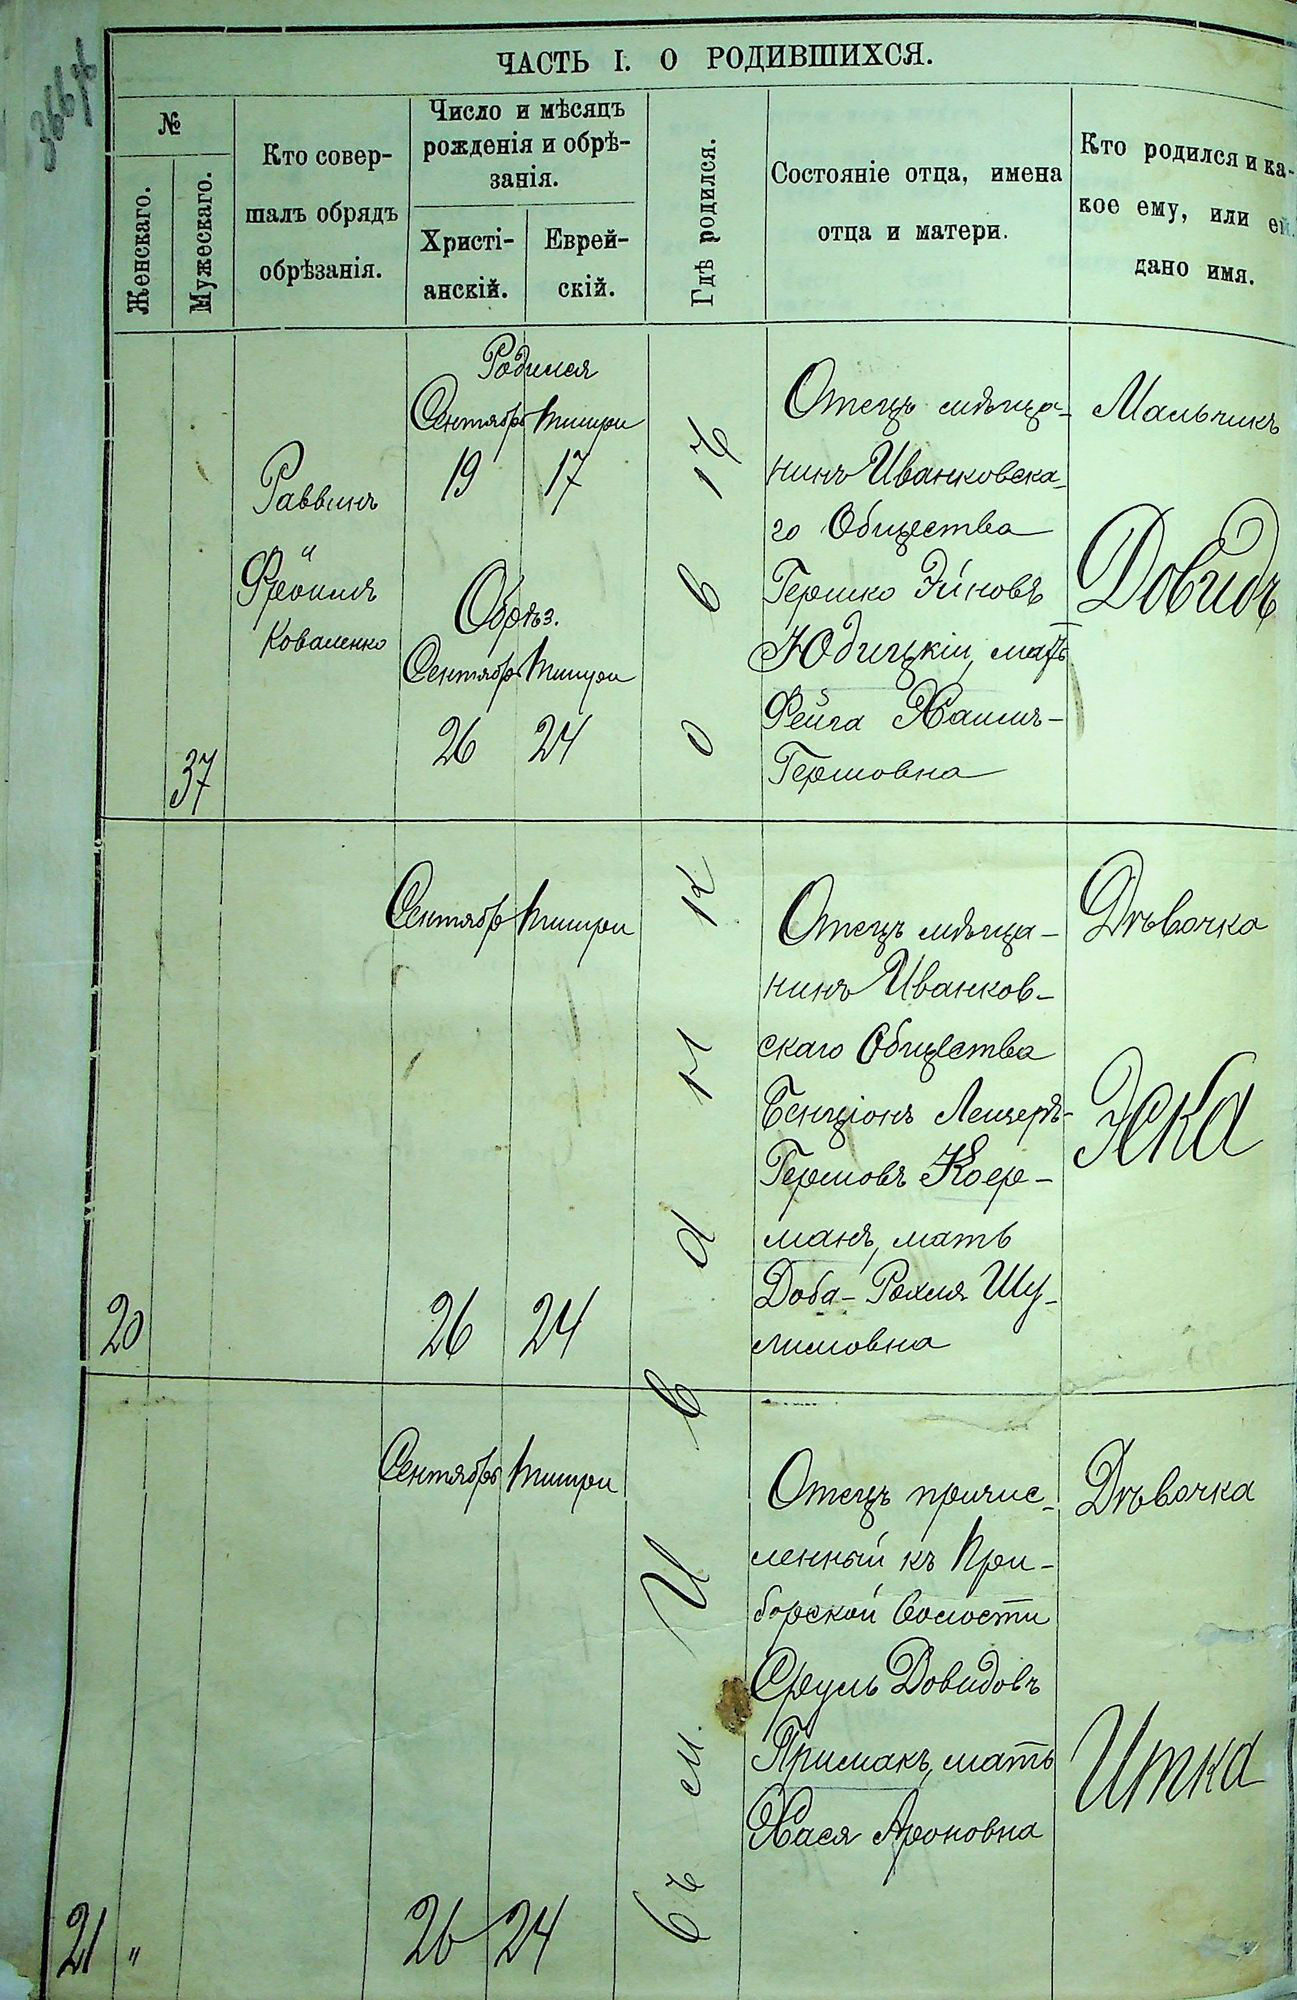 ЧАСТЬ I. О РОДИВШИХСЯ.
№
Женскаго.
Мужескаго.
Кто совер-
шалъ обрядъ
обрѣзанія.
Число и мѣсяцъ
рожденія и обрѣ-
занія.
Христі-
анскій.
Еврей-
скій.
Гдѣ родился.
Состояніе отца, имена
отца и матери.
Кто родился и ка-
кое ему, или ей
дано имя.
37
Раввинъ
и
Фроимъ
Коваленко
Родился
Сентябрь Тишри
19 17
Обрѣз.
Сентябрь Тишри
26 24
Въ м. Иванковѣ
Отецъ мѣща-
нинъ Иванковска-
го Общества
Гершко Эйновъ
Юдицкій, мать
Фейга Хаимъ-
Гершовна
Мальчикъ
Довидъ
20
Сентябрь Тишри
26 24
Отецъ мѣща-
нинъ Иванков-
скаго Общества
Бенціонъ Лейзеръ-
Гершовъ Коер-
манъ, мать
Доба-Рохля Шу-
лимовна
Дѣвочка
Эска
21 "
Сентябрь Тишри
26 24
Отецъ причис-
ленный къ При-
борской Волости
Сруль Довидовъ
Примакъ, мать
Хася Ароновна
Дѣвочка
Итка